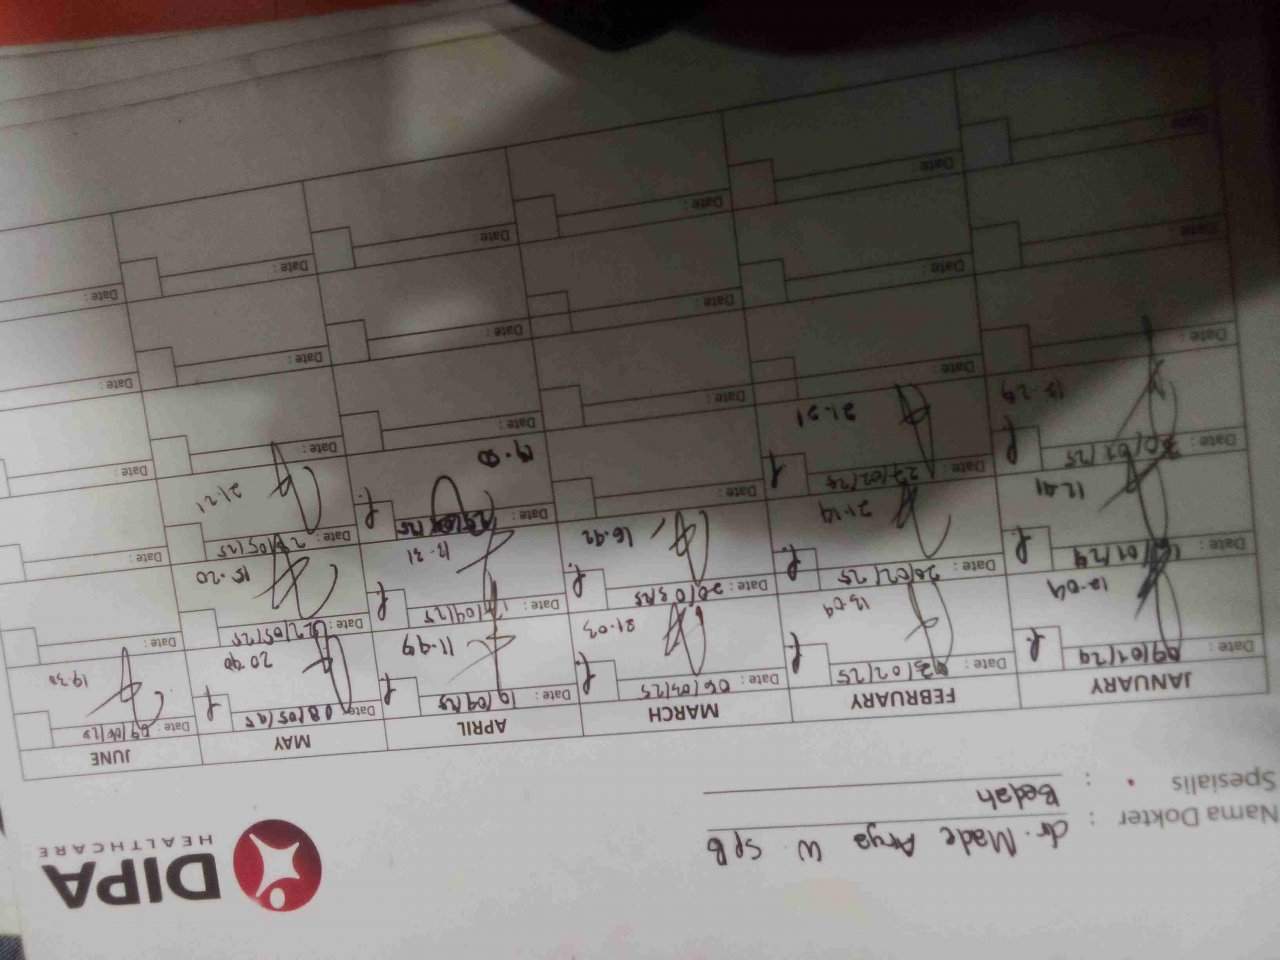 DIPA
HEALTHCARE
Nama Dokter : dr. Made Arya W SpB
Spesialis : Bedah
JANUARY FEBRUARY MARCH APRIL MAY JUNE
Date: 09/01/24 Date: 13/02/25 Date: 06/03/25 Date: 10/04/25 Date: 08/05/25 Date: 09/06/25
12.09 12.09 21.03 11.49 20.40 19.30
Date: 16/01/24 Date: 20/02/25 Date: 20/03/25 Date: 17/04/25 Date: 22/05/25 Date:
12.41 21.19 16.42 13.31 15.20
Date: 30/01/25 Date: 27/02/25 Date: Date: 25/04/25 Date: 28/05/25 Date:
21.21 21.21
Date: Date: Date: Date: Date: Date:
Date: Date: Date: Date: Date: Date:
Date: Date: Date: Date: Date: Date: